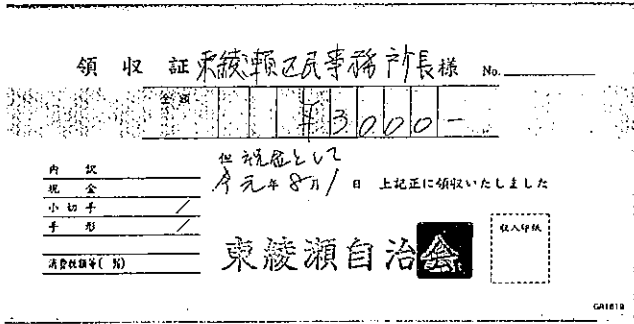 領収証 東綾瀬区民事務所長様 No.
金額 ¥3000-
但 祝金として
令元年8月1日 上記正に領収いたしました
内訳
現金
小切手 /
手形 /
消費税額等( %)
東綾瀬自治会
収入印紙
GA1818